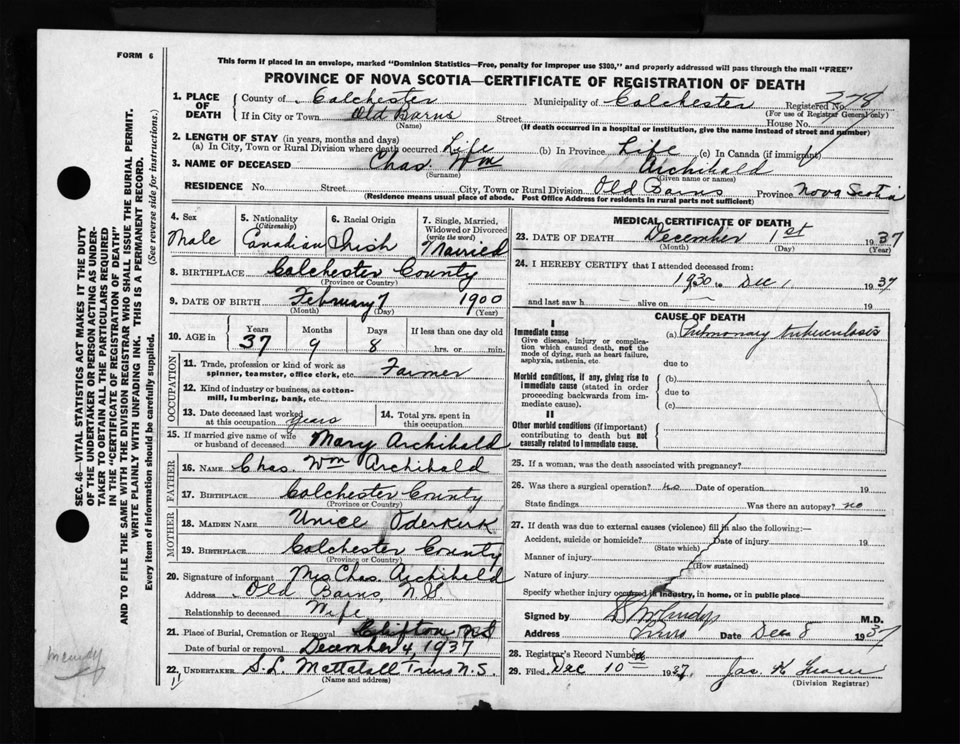 FORM 6
This form if placed in an envelope, marked "Dominion Statistics—Free, penalty for improper use $300," and properly addressed will pass through the mail "FREE"
PROVINCE OF NOVA SCOTIA—CERTIFICATE OF REGISTRATION OF DEATH
SEC. 46—VITAL STATISTICS ACT MAKES IT THE DUTY
OF THE UNDERTAKER OR PERSON ACTING AS UNDER-
TAKER TO OBTAIN ALL THE PARTICULARS REQUIRED
IN THE "CERTIFICATE OF REGISTRATION OF DEATH"
AND TO FILE THE SAME WITH THE DIVISION REGISTRAR WHO SHALL ISSUE THE BURIAL PERMIT.
WRITE PLAINLY WITH UNFADING INK. THIS IS A PERMANENT RECORD.
Every item of information should be carefully supplied. (See reverse side for instructions.)
1. PLACE OF DEATH
County of Colchester Municipality of Colchester Registered No. 778
(For use of Registrar General only)
If in City or Town Old Barns Street House No.
(Name) (If death occurred in a hospital or institution, give the name instead of street and number)
2. LENGTH OF STAY (in years, months and days)
(a) In City, Town or Rural Division where death occurred Life (b) In Province Life (c) In Canada (if immigrant)
3. NAME OF DECEASED Chas. Wm Archibald
(Surname) (Given name or names)
RESIDENCE No. Street City, Town or Rural Division Old Barns Province Nova Scotia
(Residence means usual place of abode. Post Office Address for residents in rural parts not sufficient)
4. Sex Male
5. Nationality (Citizenship) Canadian
6. Racial Origin Irish
7. Single, Married, Widowed or Divorced (write the word) Married
8. BIRTHPLACE Colchester County
(Province or Country)
9. DATE OF BIRTH February 7 1900
(Month) (Day) (Year)
10. AGE in Years 37 Months 9 Days 8 If less than one day old hrs. or min.
OCCUPATION
11. Trade, profession or kind of work as spinner, teamster, office clerk, etc. Farmer
12. Kind of industry or business, as cotton-mill, lumbering, bank, etc.
13. Date deceased last worked at this occupation years
14. Total yrs. spent in this occupation
15. If married give name of wife or husband of deceased Mary Archibald
FATHER
16. NAME Chas. Wm Archibald
17. BIRTHPLACE Colchester County
(Province or Country)
MOTHER
18. MAIDEN NAME Unice Oderkirk
19. BIRTHPLACE Colchester County
(Province or Country)
20. Signature of informant Mrs Chas. Archibald
Address Old Barns, N.S
Relationship to deceased Wife
21. Place of Burial, Cremation or Removal Clifton NS
Date of burial or removal December 4, 1937
22. UNDERTAKER S. L. Mattatall Truro N.S.
(Name and address)
MEDICAL CERTIFICATE OF DEATH
23. DATE OF DEATH December 1st 1937
(Month) (Day) (Year)
24. I HEREBY CERTIFY that I attended deceased from:
1930 to Dec 1 1937
and last saw h alive on 19
CAUSE OF DEATH
I
Immediate cause
Give disease, injury or complication which caused death, not the mode of dying, such as heart failure, asphyxia, asthenia, etc.
(a) Pulmonary tuberculosis
due to
Morbid conditions, if any, giving rise to immediate cause (stated in order proceeding backwards from immediate cause).
(b)
due to
(c)
II
Other morbid conditions (if important) contributing to death but not causally related to immediate cause.
25. If a woman, was the death associated with pregnancy?
26. Was there a surgical operation? no Date of operation 19
State findings Was there an autopsy? no
27. If death was due to external causes (violence) fill in also the following:—
Accident, suicide or homicide? Date of injury 19
(State which)
Manner of injury
(How sustained)
Nature of injury
Specify whether injury occurred in industry, in home, or in public place
Signed by M.D.
Address Truro Date Dec 8 1937
28. Registrar's Record Number
29. Filed Dec 10 1937 Jas. K. Fraser
(Division Registrar)